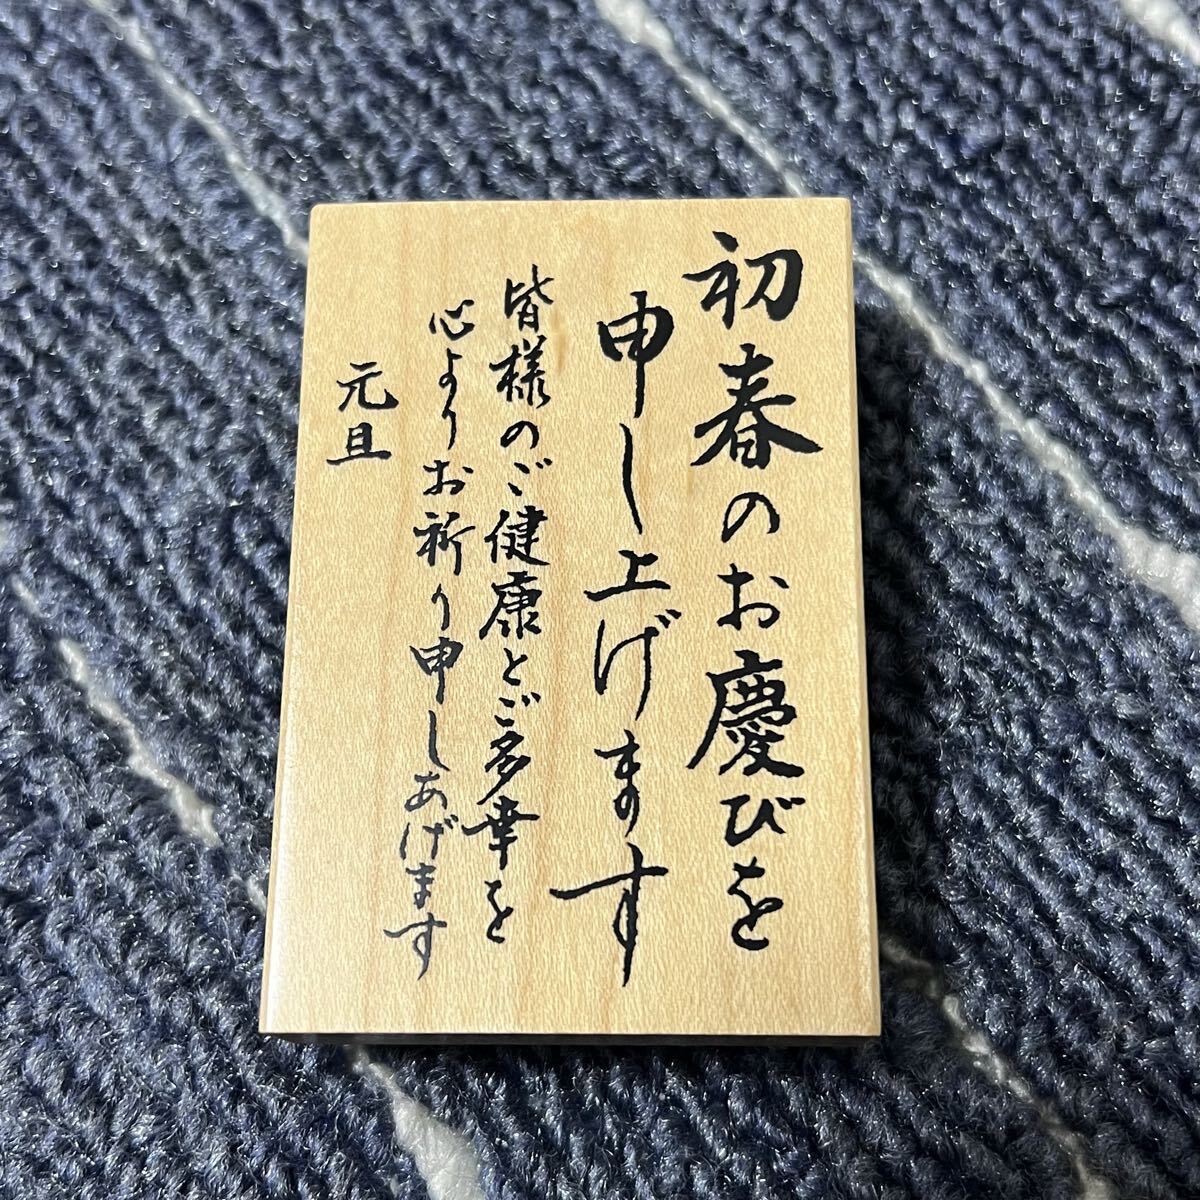 初春のお慶びを
申し上げます
皆様のご健康とご多幸を
心よりお祈り申しあげます
元旦